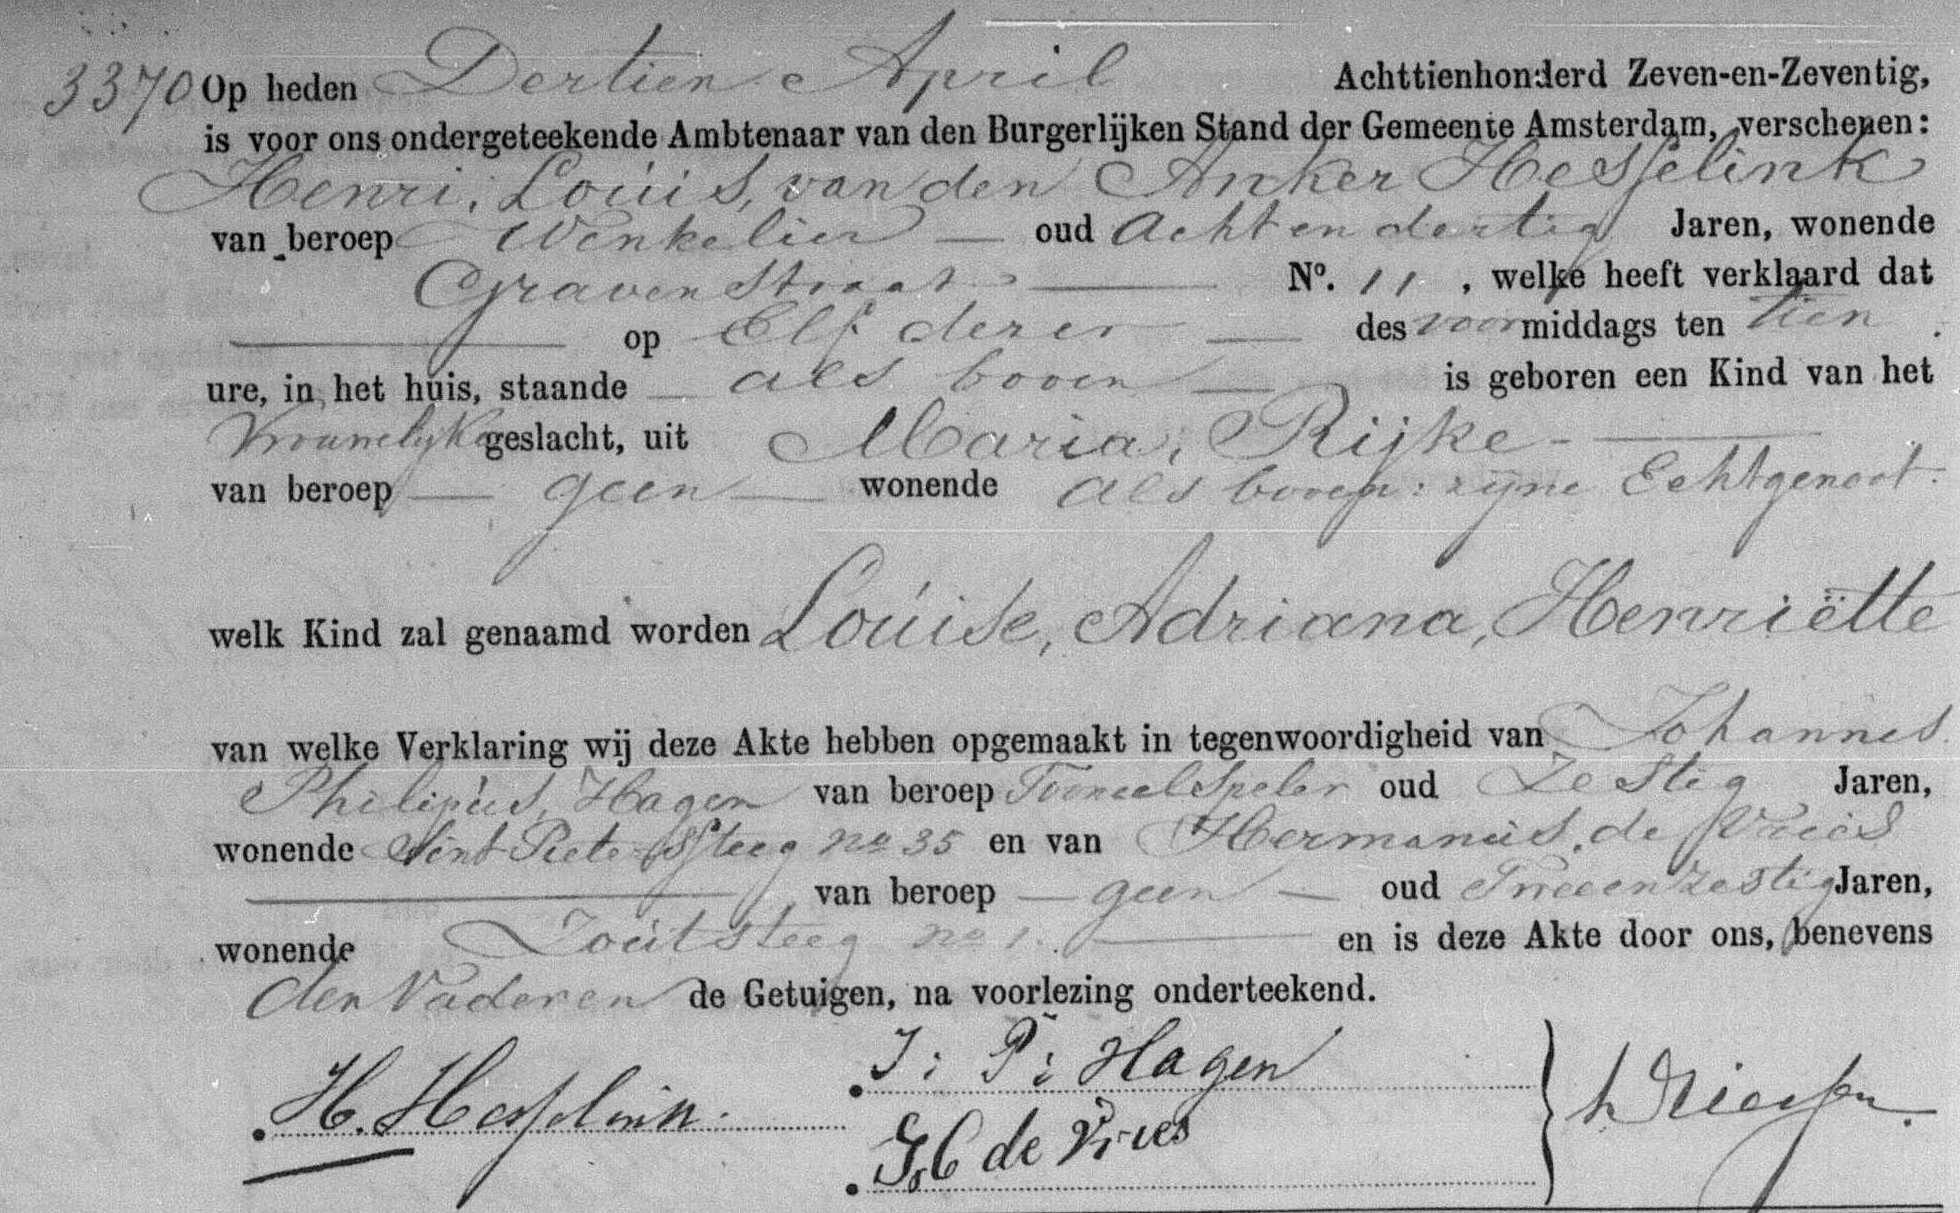 3370 Op heden Dertien April Achttienhonderd Zeven-en-Zeventig,
is voor ons ondergeteekende Ambtenaar van den Burgerlijken Stand der Gemeente Amsterdam, verschenen:
Henri, Louis, van den Anker Hesselink
van beroep Winkelier — oud Achtendertig Jaren, wonende
Gravenstraat — No. 11, welke heeft verklaard dat
— op Elf dezer — des voormiddags ten tien
ure, in het huis, staande — als boven — is geboren een Kind van het
Vrouwelijke geslacht, uit Maria, Rijke —
van beroep — geen — wonende als boven: zijne Echtgenoot.
welk Kind zal genaamd worden Louise, Adriana, Henriëtte
van welke Verklaring wij deze Akte hebben opgemaakt in tegenwoordigheid van Johannes
Philipus, Hagen van beroep Tooneelspeler oud Zestig Jaren,
wonende Sint Pieterssteeg no 35 en van Hermanus, de Vries
— van beroep — geen — oud Tweeenzestig Jaren,
wonende Zoutsteeg no 1. — en is deze Akte door ons, benevens
den Vader en de Getuigen, na voorlezing onderteekend.
H. Hesselink.
J: P: Hagen
de Vries